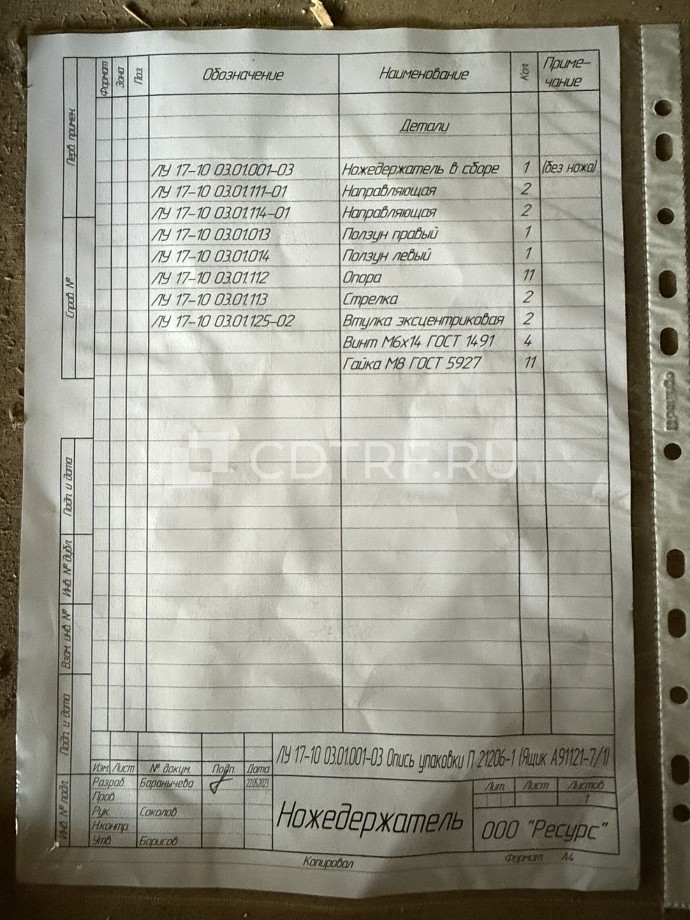 Формат
Зона
Поз.
Обозначение
Наименование
Кол.
Приме-
чание
Перв. примен.
Детали
ЛУ 17-10 03.01.001-03 Ножедержатель в сборе 1 (без ножа)
ЛУ 17-10 03.01.111-01 Направляющая 2
ЛУ 17-10 03.01.114-01 Направляющая 2
ЛУ 17-10 03.01.013 Ползун правый 1
ЛУ 17-10 03.01.014 Ползун левый 1
ЛУ 17-10 03.01.112 Опора 11
ЛУ 17-10 03.01.113 Стрелка 2
ЛУ 17-10 03.01.125-02 Втулка эксцентриковая 2
Винт М6х14 ГОСТ 1491 4
Гайка М8 ГОСТ 5927 11
Справ. №
CDTRF.RU
Подп. и дата
Инв. № дубл.
Взам. инв. №
Подп. и дата
Инв. № подл.
ЛУ 17-10 03.01.001-03 Опись упаковки П 21206-1 (Ящик А91121-7/1)
Изм. Лист № докум. Подп. Дата
Разраб. Баранычева 22.05.2023
Пров.
Рук. Соколов
Н.контр.
Утв. Борисов
Ножедержатель
Лит. Лист Листов
1
ООО "Ресурс"
Копировал
Формат А4